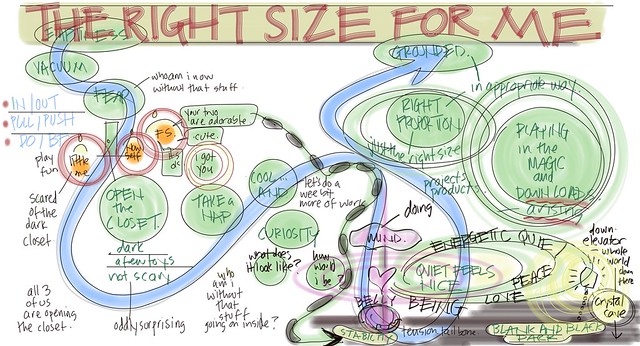 THE RIGHT SIZE FOR ME
EMPTINESS
VACUUM
FEAR
who am i now
without that stuff.
IN/OUT
PULL/PUSH
DO/BE
play
fun
little
me
now
self
F.S.
it's
ok
your two
are adorable
cute.
i got
you
scared
of the
dark
closet
OPEN
the
CLOSET.
dark
a few toys
not scary
TAKE a
NAP
all 3
of us
are opening
the closet.
oddly surprising
who
am i
without
that
stuff
going on inside?
COOL...
AND
CURIOSITY
what does
it look like?
how
would
i be?
let's do a
wee bit
more of work
GROUNDED.
in appropriate way.
RIGHT
PROPORTION
just the right size
projects
products.
PLAYING
in the
MAGIC
and
DOWNLOADS.
arising
doing
MIND.
BELLY
BEING
STABILITY
tension tailbone.
ENERGETIC QUIE
QUIET FEELS
NICE
PEACE
LOVE
down
elevator
whole
world
down
here
crystal
cave
BLANK AND BLACK
DARK